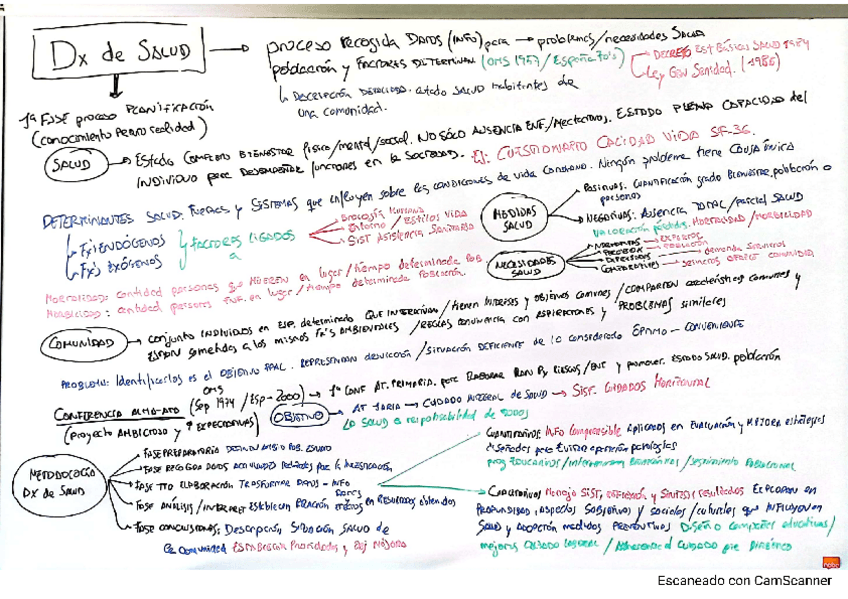 Dx de SALUD → proceso recogida DATOS (INFO) para → problemas/necesidades SALUD
población y FACTORES DETERMINAN (OMS 1957 / España 70's)
DECRETO Est Básica SALUD 1984
Ley Gen Sanidad. (1986)
↳ DESCRIPCIÓN DETALLADA estado SALUD habitantes de
una comunidad.
1ª FASE proceso PLANIFICACIÓN
(conocimiento realidad)
SALUD → Estado COMPLETO BIENESTAR físico/mental/social. NO SÓLO AUSENCIA ENF./ ESTADO PLENA CAPACIDAD del
INDIVIDUO para DESEMPEÑAR funciones en la SOCIEDAD. Ej: CUESTIONARIO CALIDAD VIDA SF-36.
DETERMINANTES SALUD: FUERZAS y SISTEMAS que influyen sobre las condiciones de vida. Ningún problema tiene CAUSA ÚNICA
↳ Fx's ENDÓGENOS
↳ Fx's EXÓGENOS
y FACTORES LIGADOS
a
BIOLOGÍA HUMANA
Entorno / ESTILOS VIDA
SIST ASISTENCIA SANITARIO
MEDIDAS
SALUD
POSITIVAS: CUANTIFICACIÓN grado BIENESTAR, población o
personas
NEGATIVAS: AUSENCIA TOTAL/parcial SALUD
VALORACIÓN pérdidas. MORTALIDAD/MORBILIDAD
NECESIDADES
SALUD
NORMATIVAS → EXPERTOS
→ POBLACIÓN
EXPRESADAS → demanda servicios
COMPARATIVAS → servicios OFRECE COMUNIDAD
MORTALIDAD: cantidad personas que MUEREN en lugar/tiempo determinado POB.
MORBILIDAD: cantidad personas ENF. en lugar/tiempo determinado POBLACIÓN.
COMUNIDAD → conjunto INDIVIDUOS en ESP. determinado QUE INTERACTÚAN/tienen INTERESES y OBJETIVOS comunes/COMPARTEN características comunes y
ESTÁN sometidos a los mismos FX'S AMBIENTALES/REGLAS CONVIVENCIA con ASPIRACIONES y PROBLEMAS similares
PROBLEMA: Identificarlos es el OBJETIVO PPAL. REPRESENTAN DESVIACIÓN/SITUACIÓN DEFICIENTE de lo considerado ÓPTIMO - CONVENIENTE
CONFERENCIA ALMA-ATA (OMS Sep 1974 / Esp-2000) → 1ª CONF AT. PRIMARIA. para ELABORAR PLAN RIESGOS/ENF y promover ESTADO SALUD población
(proyecto AMBICIOSO y ↑ EXPECTATIVAS)
OBJETIVO → AT 1ARIA → CUIDADO INTEGRAL de SALUD → SIST. CUIDADOS HORIZONTAL
LA SALUD es responsabilidad de todos
METODOLOGÍA
DX de SALUD
FASE PREPARATORIA
FASE RECOGIDA DATOS
FASE TTO ELABORACIÓN TRANSFORMAR DATOS - INFO
FASE ANÁLISIS/INTERPRET ESTABLECEN RELACIÓN en RESULTADOS obtenidos
FASE CONCLUSIONES: Descripción SITUACIÓN SALUD de
la comunidad ESTABLECER PRIORIDADES y MEJORA
CUANTITATIVOS: INFO COMPRENSIBLE aplicados en EVALUACIÓN y MEJORA estrategias
diseñadas para EVITAR aparición patologías
PROG EDUCATIVOS/intervención/SEGUIMIENTO POBLACIONAL
CUALITATIVOS Manejo SIST, y SÍNTESIS resultados EXPLORAN en
PROFUNDIDAD, ASPECTOS SUBJETIVOS y sociales/culturales que INFLUYEN en
SALUD y ADOPCIÓN medidas PREVENTIVAS DISEÑO campañas educativas/
mejoras CUIDADO/ADHERENCIA CUIDADO pie DIABÉTICO
Escaneado con CamScanner